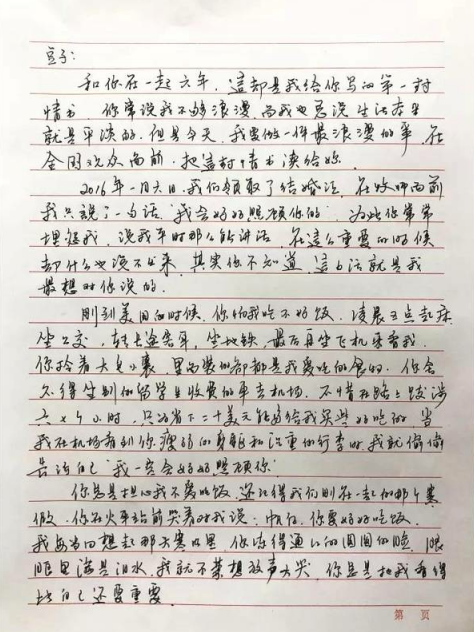 豆子：
和你在一起六年，这却是我给你写的第一封
情书，你常说我不够浪漫，而我也总说生活本身
就是平淡的，但是今天，我要做一件最浪漫的事，在
全国观众面前，把这封情书读给你。
2016年一月六日，我们领取了结婚证，在牧师面前
我只说了一句话“我会好好照顾你的”，为此你常常
埋怨我，说我平时那么能讲话，在这么重要的时候
却什么也说不出来，其实你不知道，这句话就是我
最想对你说的。
刚到美国的时候，你怕我吃不好饭，凌晨三点起床
坐公交，转长途客车，坐地铁，最后再坐飞机来看我。
你拎着大包小裹，里面装的却都是我爱吃的食物，你舍
不得坐别的留学生收费的车去机场，不惜在路上跋涉
六七个小时，只为省下二十美元能够给我买些好吃的，当
我在机场看到你瘦弱的身躯和沉重的行李时，我就偷偷
告诉自己“我一定会好好照顾你”
你总是担心我不爱吃饭，还记得我们刚在一起的那个寒
假，你在火车站前哭着对我说：你要好好吃饭。
我每当回想起那大寒天里，你冻得通红的圆圆的脸，眼
眶里满是泪水，我就不禁想放声大哭，你总是把我看得
比自己还要重要。
第 页